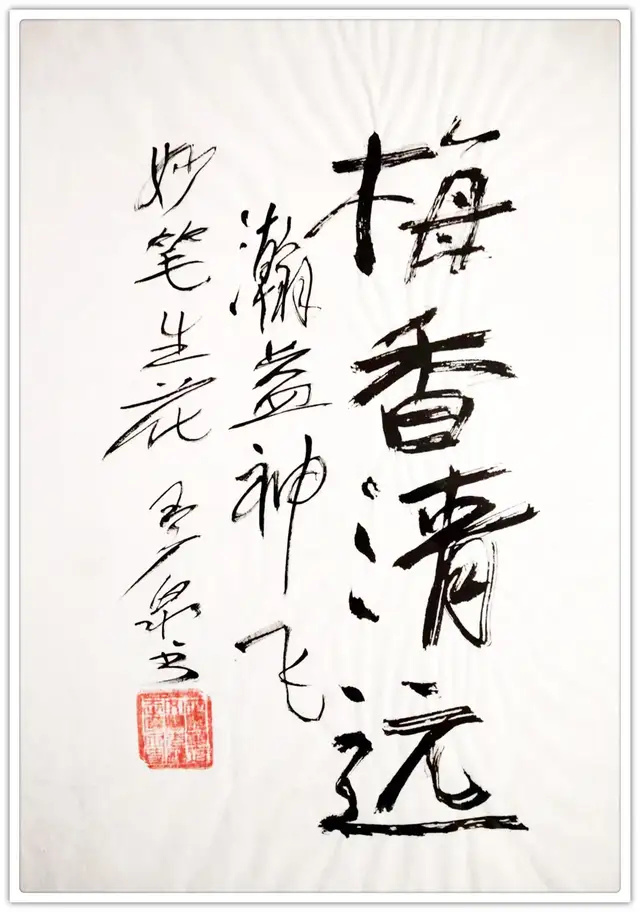 梅香清远
瀚益神飞
妙笔生花 泉书